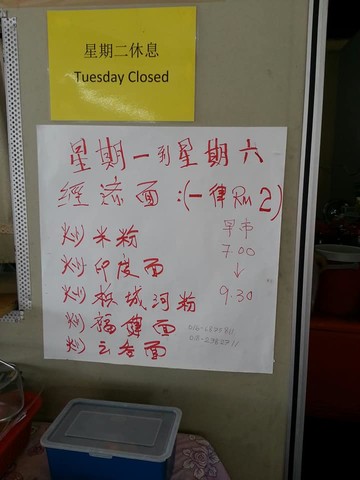 星期二休息
Tuesday Closed
星期一到星期六
經济面:(一律RM2)
炒米粉
炒印度面
炒板城河粉
炒福健面
炒云吞面
早市
7.00
↓
9.30